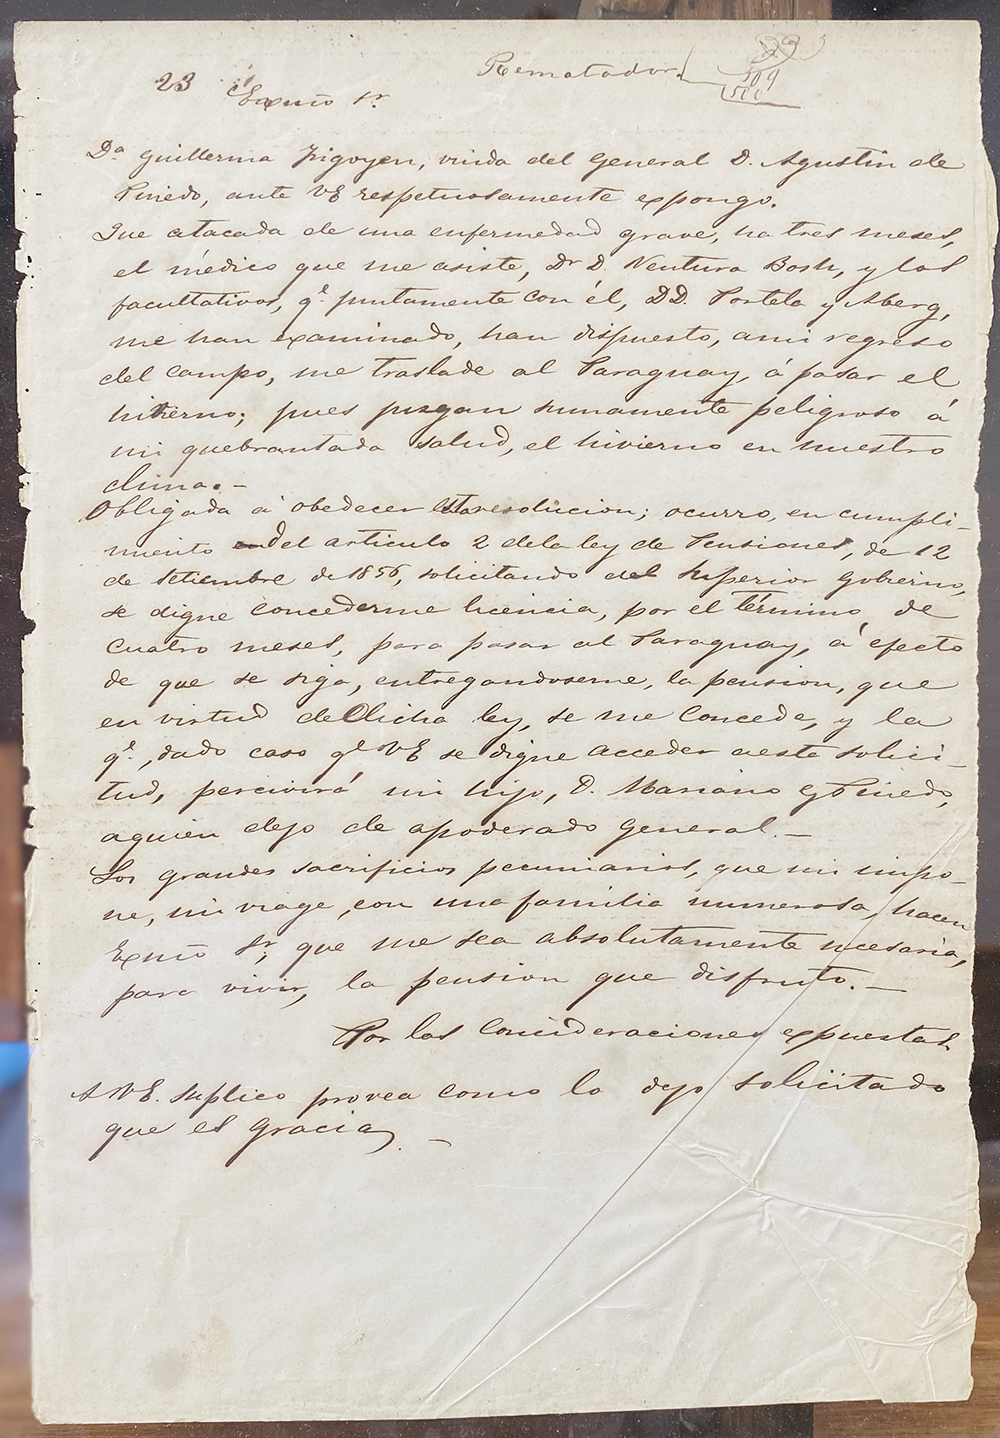 Rematador
509
500
23
Exmo Sr
Da Guillerma Yrigoyen, viuda del General D. Agustin de
Pinedo, ante VE respetuosamente expongo.
Que atacada de una enfermedad grave, ha tres meses,
el médico que me asiste, Dr D. Ventura Bosh, y los
facultativos, qe. juntamente con él, DD. Portela y Aberg,
me han examinado, han dispuesto, ami regreso
del campo, me traslade al Paraguay, á pasar el
hivierno; pues juzgan sumamente peligroso á
mi quebrantada salud, el hivierno en nuestro
clima. -
Obligada á obedecer esta resolucion; ocurro, en cumpli-
miento del articulo 2 dela ley de Pensiones, de 12
de Setiembre de 1856, solicitando del Superior Gobierno,
se digne concederme licencia, por el término, de
cuatro meses, para pasar al Paraguay, á efecto
de que se siga, entregandoseme, la pension, que
en virtud de dicha ley, se me concede, y la
qe., dado caso qe VE se digne acceder aesta solici-
tud, percivirá mi hijo, D. Mariano G. Pinedo,
aquien dejo de apoderado General. -
Los grandes sacrificios pecuniarios, que mi impo-
ne, mi viage, con una familia numerosa, hacen
Exmo Sr, que me sea absolutamente necesaria,
para vivir, la pension que disfruto. -
Por las consideraciones expuestas
A VE. suplico provea como lo dejo solicitado
que es gracia -